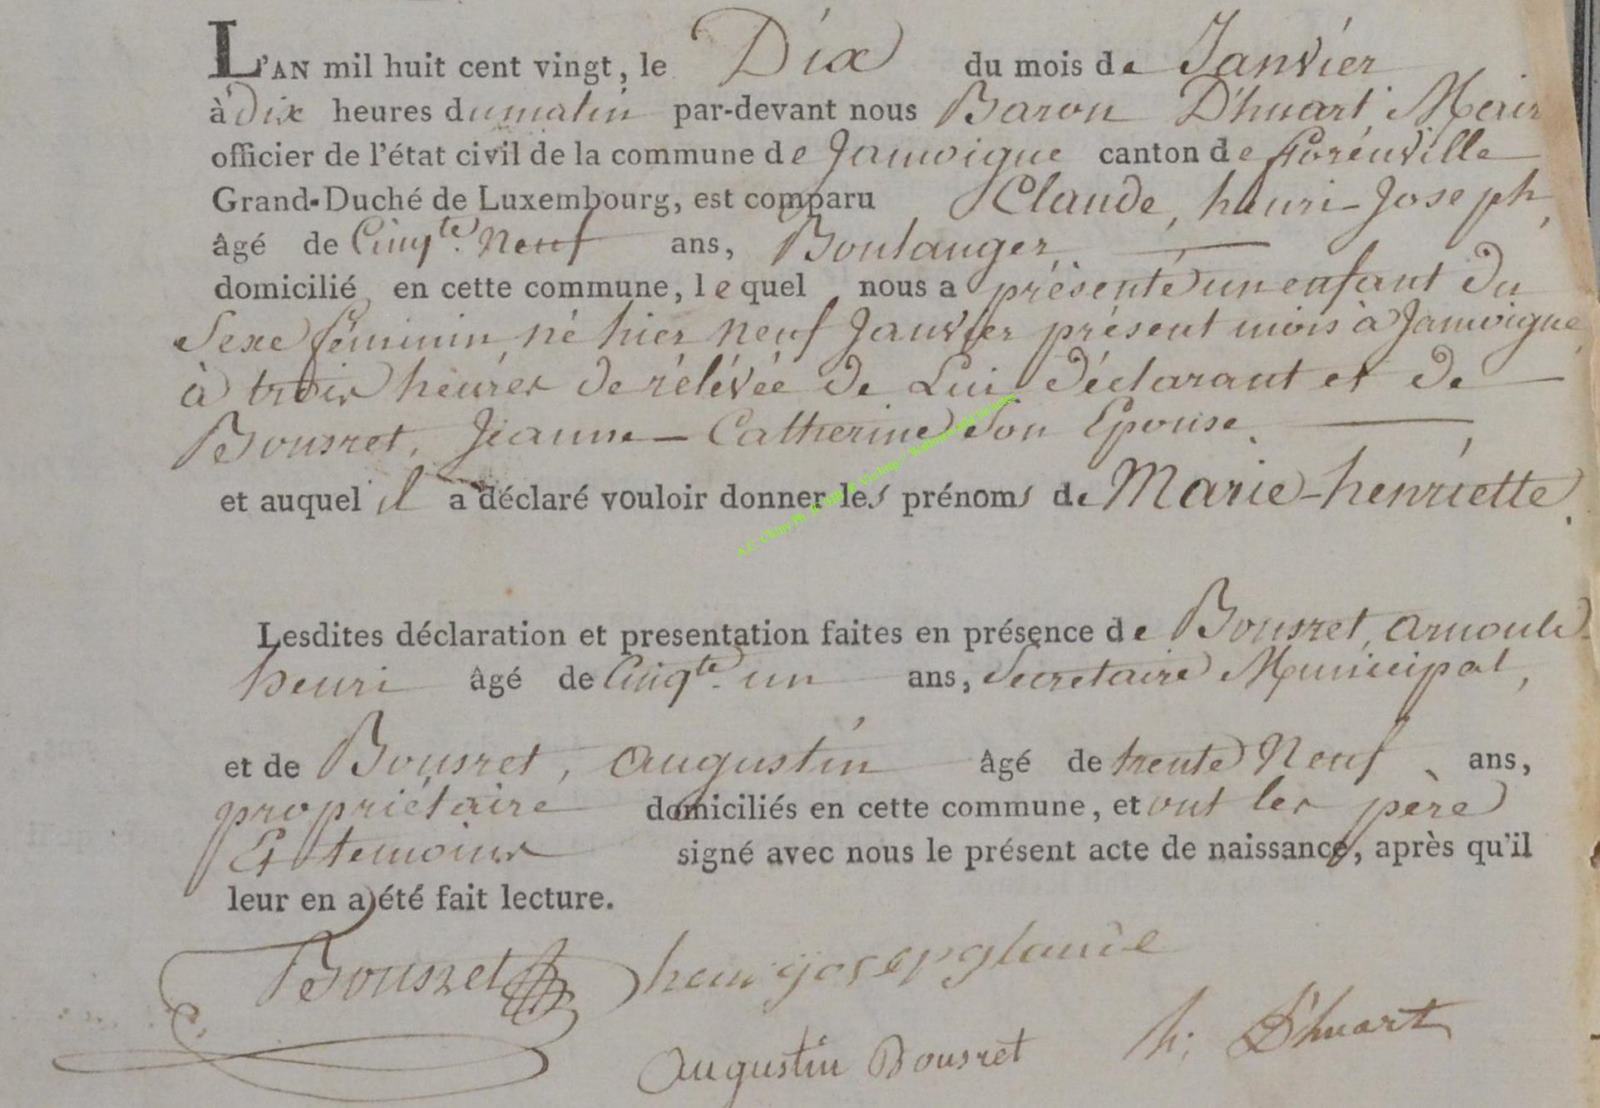 L'AN mil huit cent vingt, le Dix du mois de Janvier
à dix heures du matin par-devant nous Baron D'huart Mair
officier de l'état civil de la commune de Jamoigne canton de florenville
Grand-Duché de Luxembourg, est comparu Claude, henri-Joseph,
âgé de Cinqte. Neuf ans, Boulanger
domicilié en cette commune, lequel nous a présenté un enfant du
Sexe féminin né hier neuf Janvier présent mois à Jamoigne
à trois heures de rélévée de Lui déclarant et de
Bousret, Jeanne-Catherine Son Epouse.
et auquel il a déclaré vouloir donner les prénoms de Marie-henriette.
Lesdites déclaration et presentation faites en présence de Bousret, arnould
henri âgé de Cinqte. un ans, Secretaire Municipal,
et de Bousret, augustin âgé de trente Neuf ans,
propriétaire domiciliés en cette commune, et ont les père
Et temoins signé avec nous le présent acte de naissance, après qu'il
leur en a été fait lecture.
Bousret henrijosepglaude
augustin Bousret h: D'huart